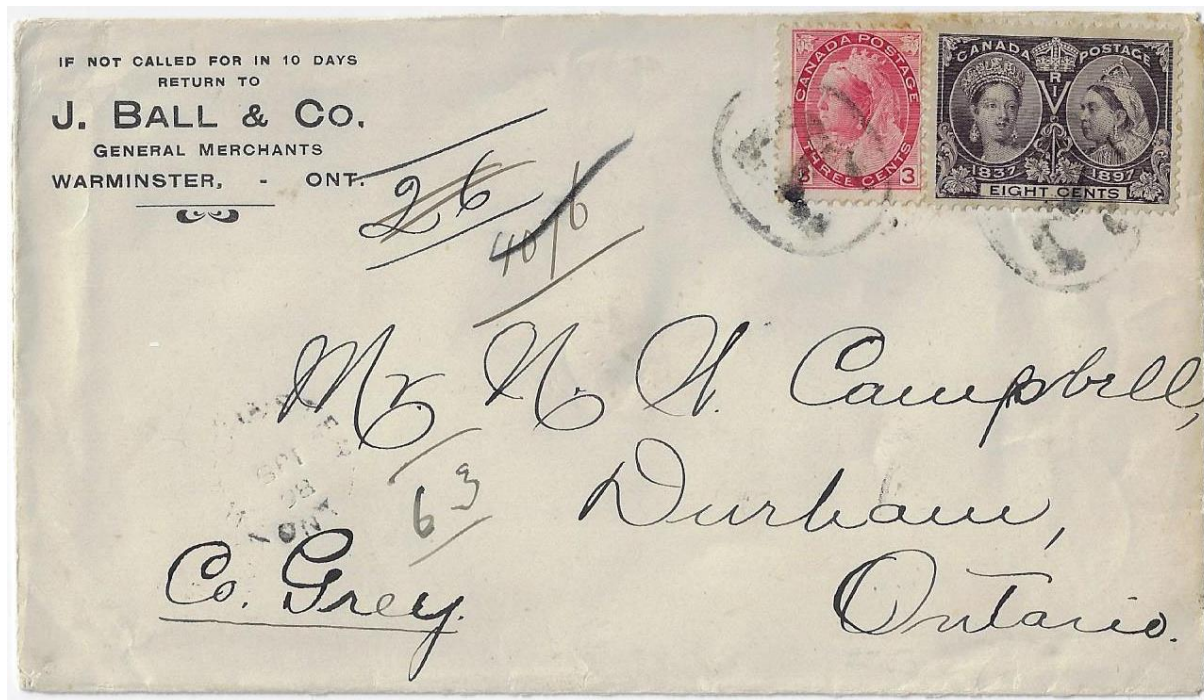 IF NOT CALLED FOR IN 10 DAYS
RETURN TO
J. BALL & CO.
GENERAL MERCHANTS
WARMINSTER, - ONT.
CANADA POSTAGE
THREE CENTS
3 3
CANADA POSTAGE
V R I
1837 1897
EIGHT CENTS
26
40/6
Mr. N. W. Campbell,
63
Durham,
Co. Grey.
Ontario.